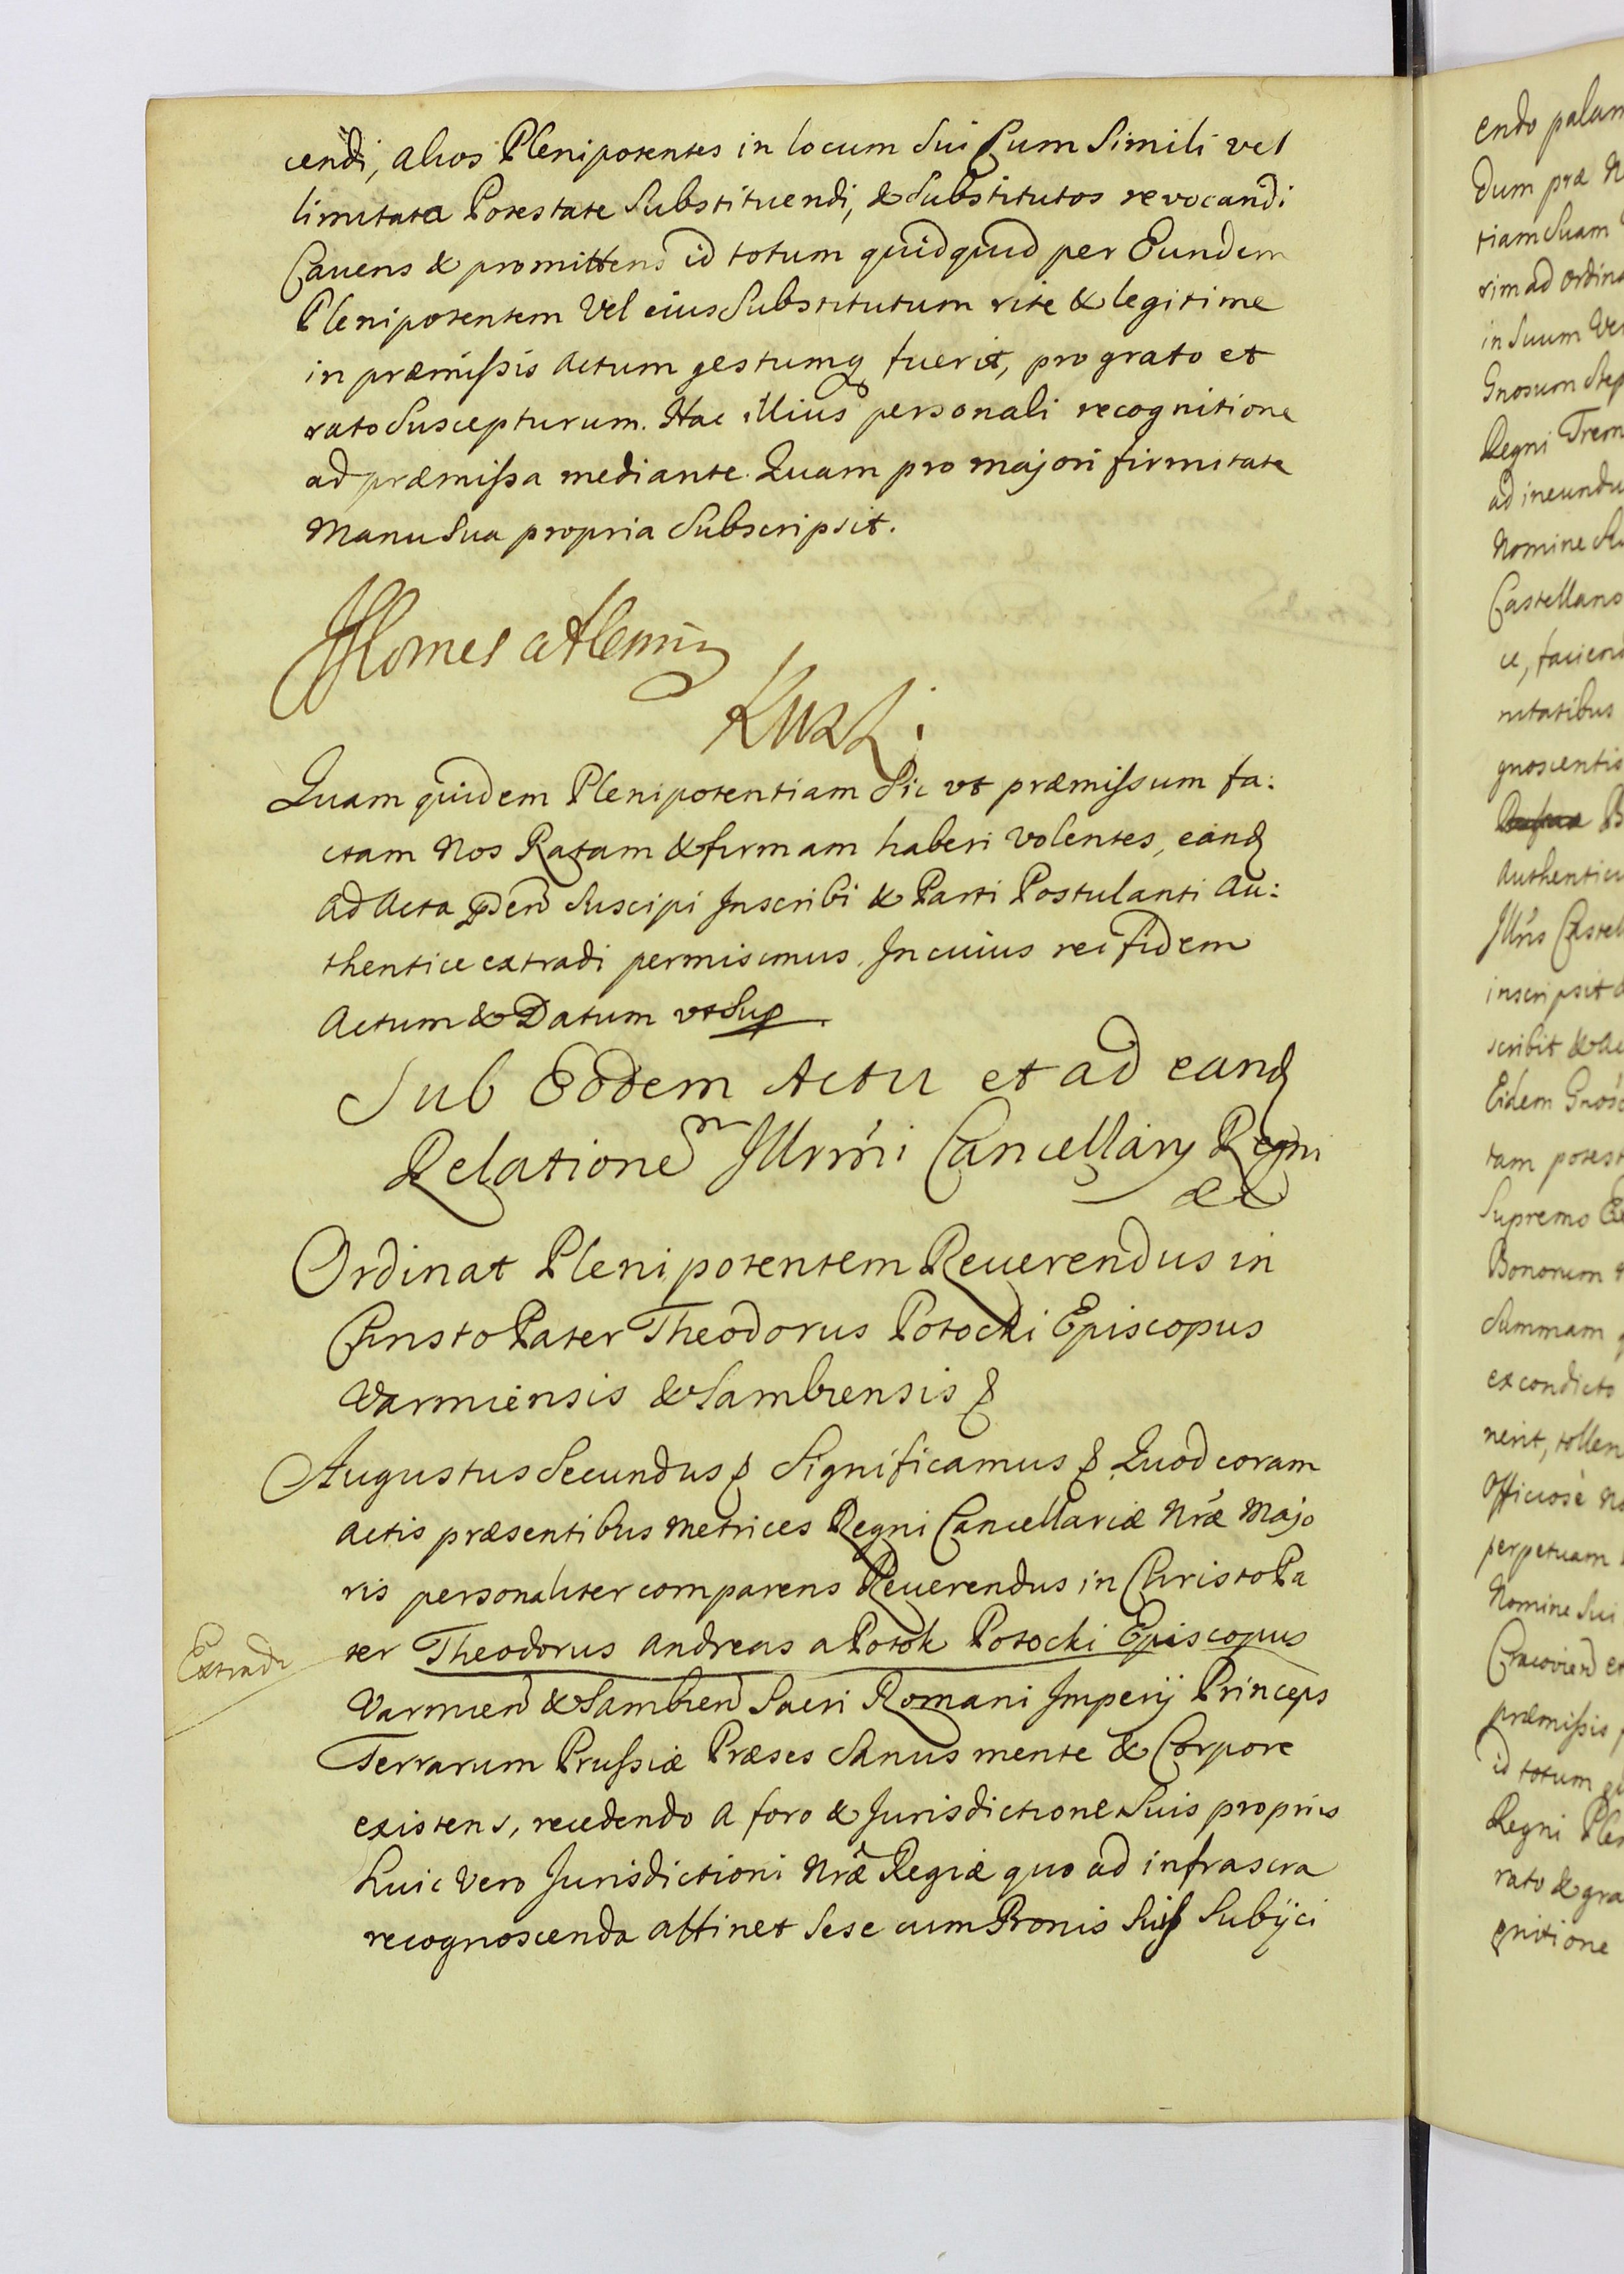 cendi, alios Plenipotentes in locum Sui Cum Simili vel
limitata Potestate Substituendi, & Substitutos revocandi
Cauens & promittens id totum quidquid per Eundem
Plenipotentem Vel eius Substitutum rite & legitime
in præmissis actum gestumq fuerit, pro grato et
rato Suscepturum. Hac illius personali recognitione
ad præmissa mediante. Quam pro majori firmitate
Manu Sua propria Subscripsit.
Quam quidem Plenipotentiam Sic vt præmissum fa:
ctam Nos Ratam & firmam haberi Volentes, eand
ad Acta Suscipi Inscribi & Parti Postulanti Au:
thentice extradi permisimus. In cuius rei fidem
Actum & Datum vt Sup
Sub Eodem Actu et ad eand
Relationem Illrmi Cancellarij Regni
Ordinat Plenipotentem Reuerendus in
Christo Pater Theodorus Potocki Episcopus
Varmiensis & Sambiensis
Augustus Secundus Significamus Quod coram
actis præsentibus Metrices Regni Cancellariæ Nræ Majo
ris personaliter comparens Reuerendus in Christo Pa
Extradi
ter Theodorus Andreas a Potok Potocki Episcopus
Varmien & Sambien Sacri Romani Imperij Princeps
Terrarum Prussiæ Præses Sanus mente & Corpore
existens, recedendo a foro & Jurisdictione Suis proprijs
huic Vero Jurisdictioni Nræ Regiæ quo ad infrascra
recognoscenda attinet Sese cum Bonis Suis Subijci
endo palam
Dum præ
tiam Suam
rim ad ordina
in Suum
Gnosum Step
Regni
ad ineundu
Nomine
Castellano
ce, facien
ntatibus
gnoscentis
Authentic
Illris Castel
inscripsit
scribit &
Eidem
tam potest
Supremo
Bonorum
Summam
excondicto
nerit, tollen
Officiose
perpetuam
Nomine Sui
Cracovien
præmissis
id totum
Regni Plen
rato & gra
gnitione